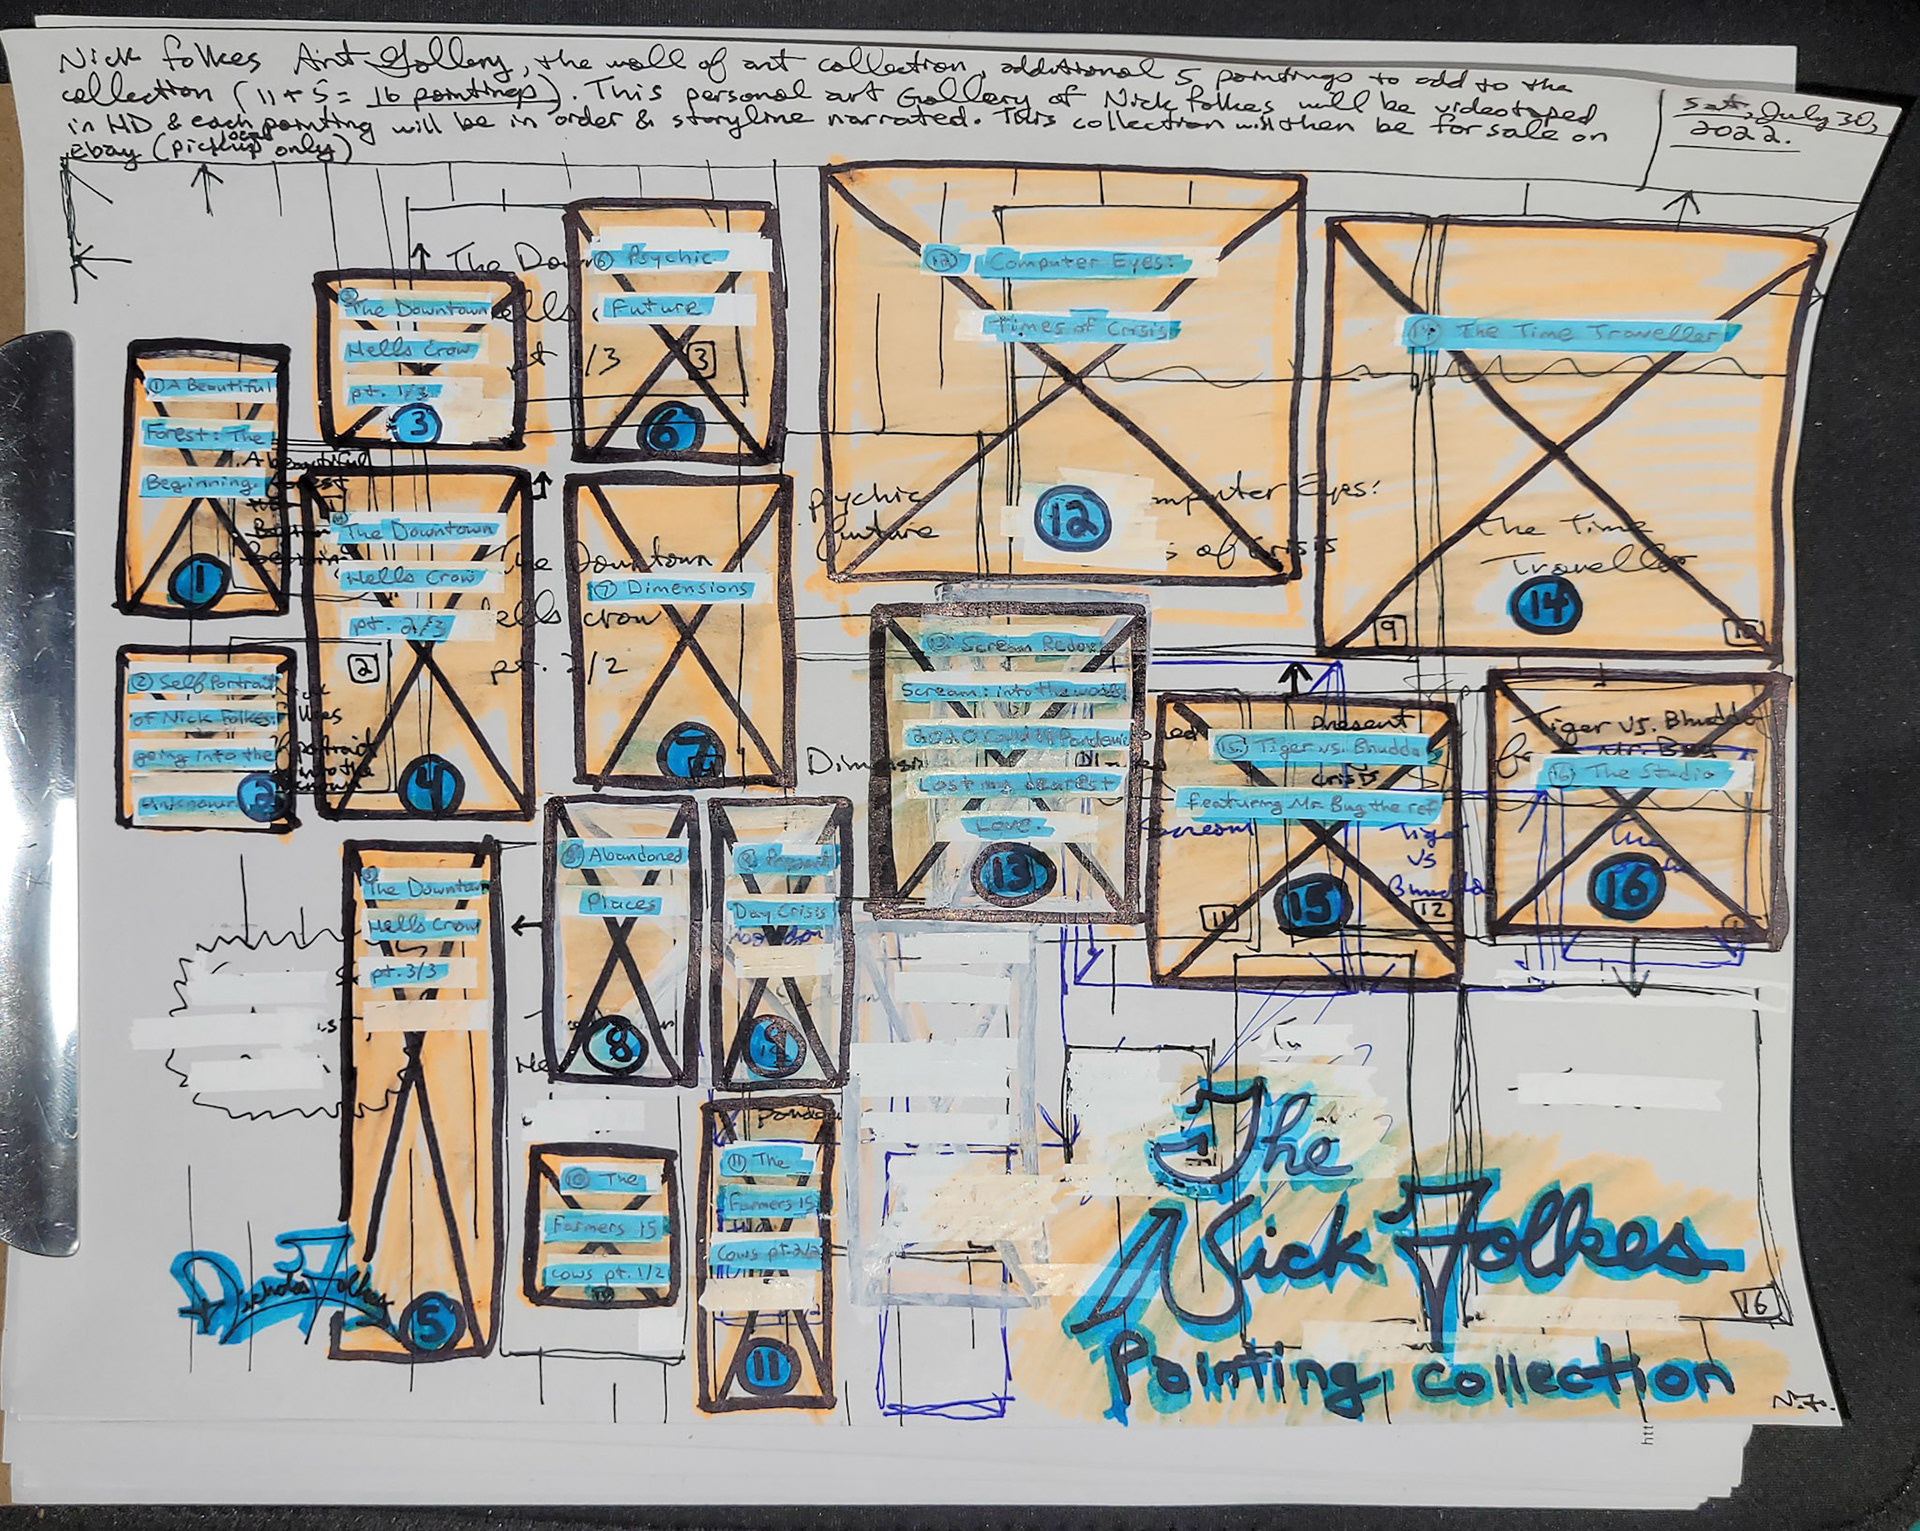 Nick Folkes Art Gallery, the wall of art collection, additional 5 paintings to add to the
collection (11 + 5 = 16 paintings). This personal art Gallery of Nick Folkes will be videotaped
in HD & each painting will be in order & storyline narrated. This collection will then be for sale on
ebay (pickup local only)
Sat, July 30,
2022.
① A Beautiful
Forest: The
Beginning.
1
② Self Portrait
of Nick Folkes:
going into the
unknown
2
The Downtown
Hells Crow
pt. 1/3
3
The Downtown
Hells Crow
pt. 2/3
2
4
The Downtown
Hells Crow
pt. 3/3
5
⑥ Psychic
Future
3
6
⑦ Dimensions
7
Abandoned
Places
8
Present
Day Crisis
9
⑩ The
Farmers 15
cows pt. 1/2
⑪ The
Farmers 15
Cows pt. 2/2
11
⑫ Computer Eyes:
Times of Crisis
12
⑬ Scream Redox
Scream: into the woods
2020 Covid 19 Pandemic
Lost my dearest
Love.
13
⑭ The Time Traveller
The Time
Traveller
14
9
10
Present
⑮ Tiger vs. Bhudda
Crisis
featuring Mr. Bug the ref
Tiger
vs
Bhudda
15
11
12
Tiger vs. Bhudda
Mr. Bug
⑯ The Studio
16
The Down
pt 1/3
Psychic
Future
mputer Eyes:
s of Crisis
The Downtown
ells crow
pt. 2/2
Scream
Nicholas Folkes
The
Nick Folkes
Painting collection
16
N.F.
htt